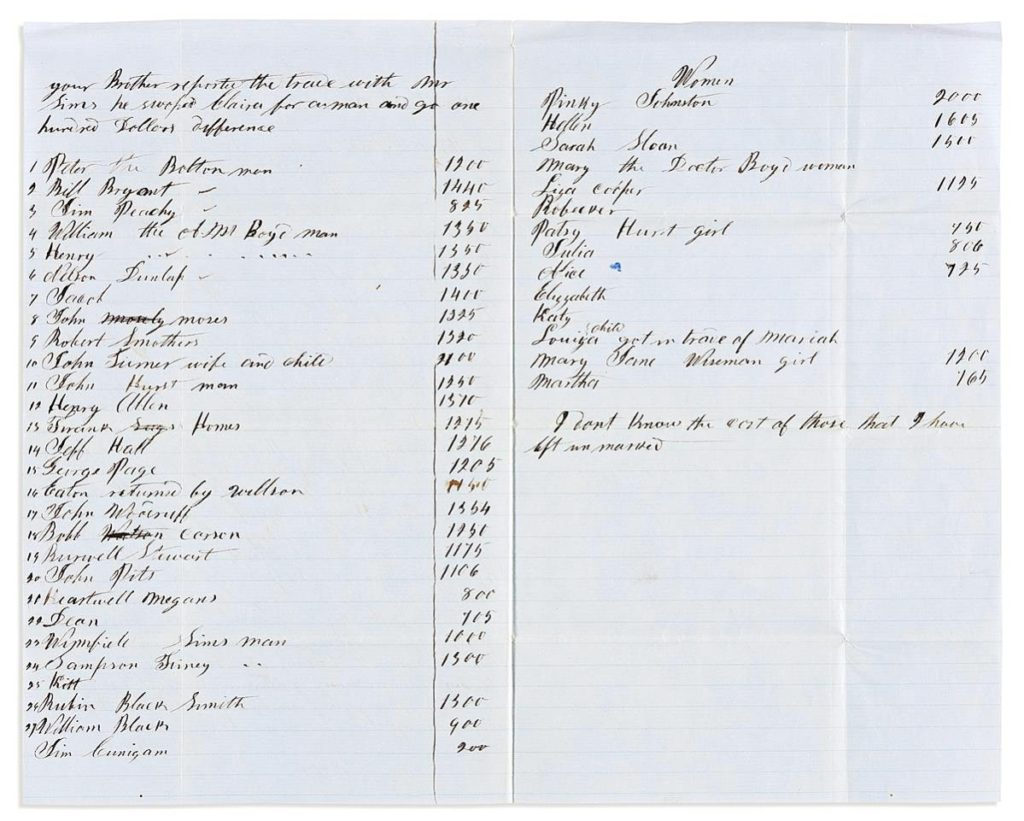 your Brother reporte the trade with Mr
Sims he swoped Claira for a man and go one
hundred Dollars difference
1 Peter the Bolton man 1200
2 Bill Bryant 〃 1440
3 Jim Peachy 〃 825
4 William the Boyd man 1350
5 Henry 〃 〃 1350
6 Nelson Dunlap 〃 1350
7 Jacob 1400
8 John moses 1225
9 Robert Smothers 1320
10 John Turner wife and child 2100
11 John Hurst man 1250
12 Henry Allen 1370
13 Homes 1275
14 Jeff Hall 1276
15 George Page 1205
16 Eaton returned by Willson 1150
17 John Woodruff 1354
18 Bobb Carson 1250
19 Burwell Stewart 1175
20 John Pits 1106
21 Heartwell Megans 800
22 Dean 705
23 Winfield Sims man 1000
24 Sampson Finey 〃 1300
25 Kitt
26 Rubin Black Smith 1300
27 William Black 900
Jim Cunigam 200
Women
Pinky Johnston 2000
Hellen 1605
Sarah Sloan 1500
Mary the Doctor Boyd woman
Liza Cooper 1125
Rebecker
Patsy Hurst girl 750
Julia 806
Alice 725
Elizzabeth
Katy
Louiza child got in trade of Mariah
Mary Jane Wiseman girl 1200
Martha 765
I dont know the cost of those that I have
left unmarked